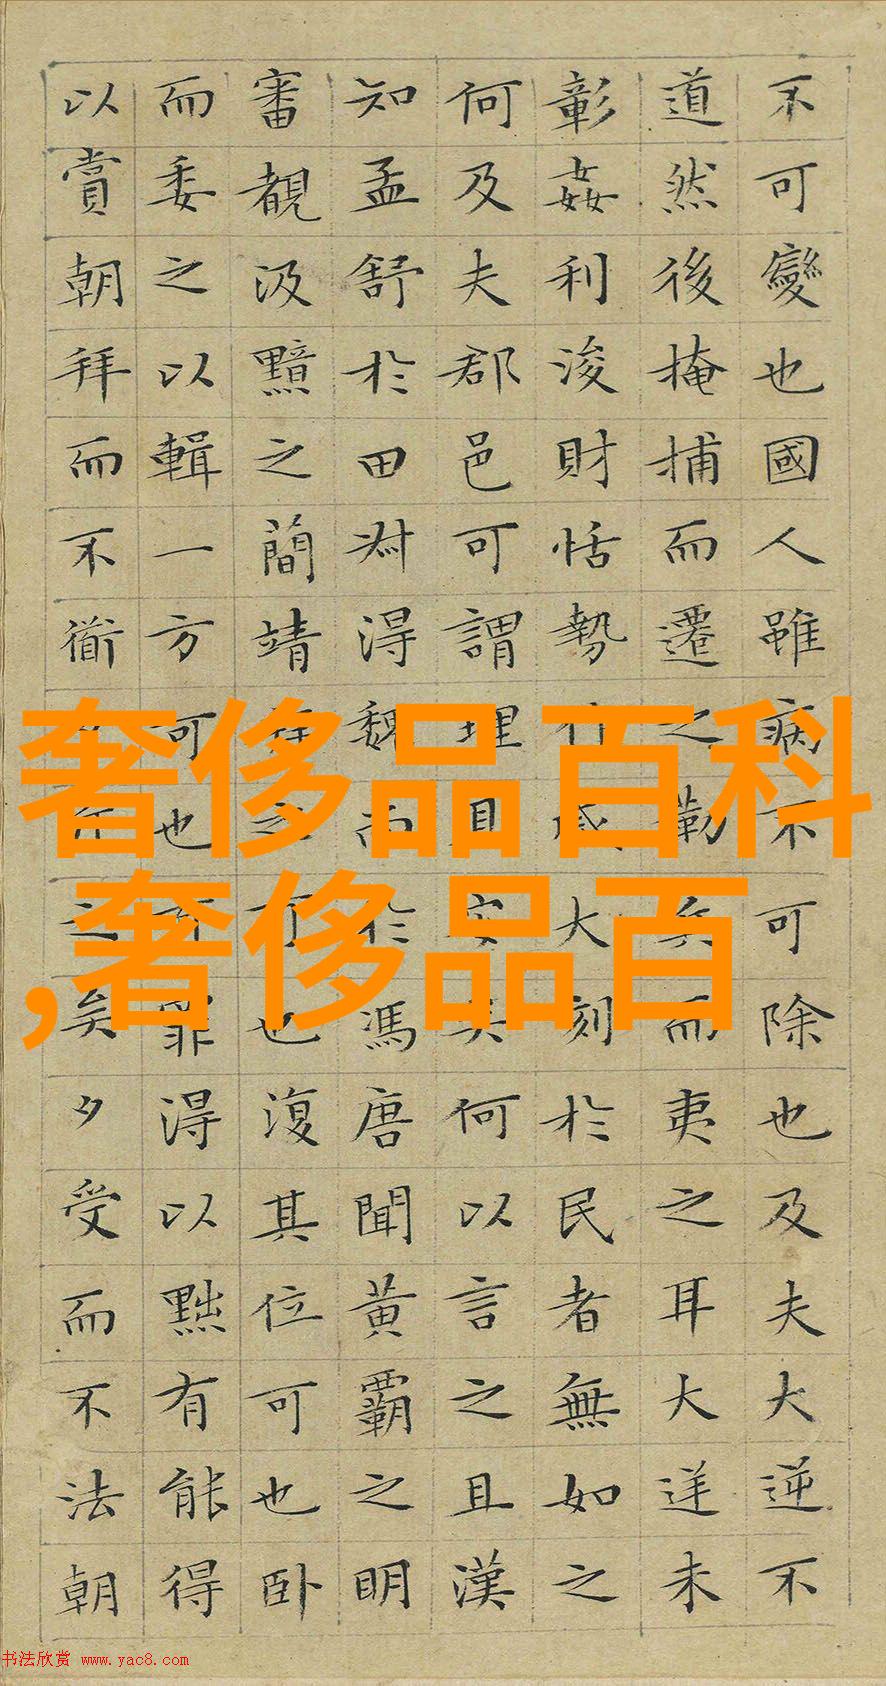 不可變也國人雖病不可除也及夫大逆不
道然後掩捕而遷之勒兵而夷之耳大逆未
彰姦利浚財恬勢作威大刻於民者無如之
何及夫郡邑可謂理且安矣何以言之且漢
知孟舒於田叔得魏尚於馮唐聞黃霸之明
審覩汲黯之簡靖拜之可也復其位可也卧
而委之以輯一方可也有罪得以黜有能得
以賞朝拜而不衜斥之矣夕受而不法朝
奢侈品百科
,奢侈品百
书法欣赏 www.yac8.com